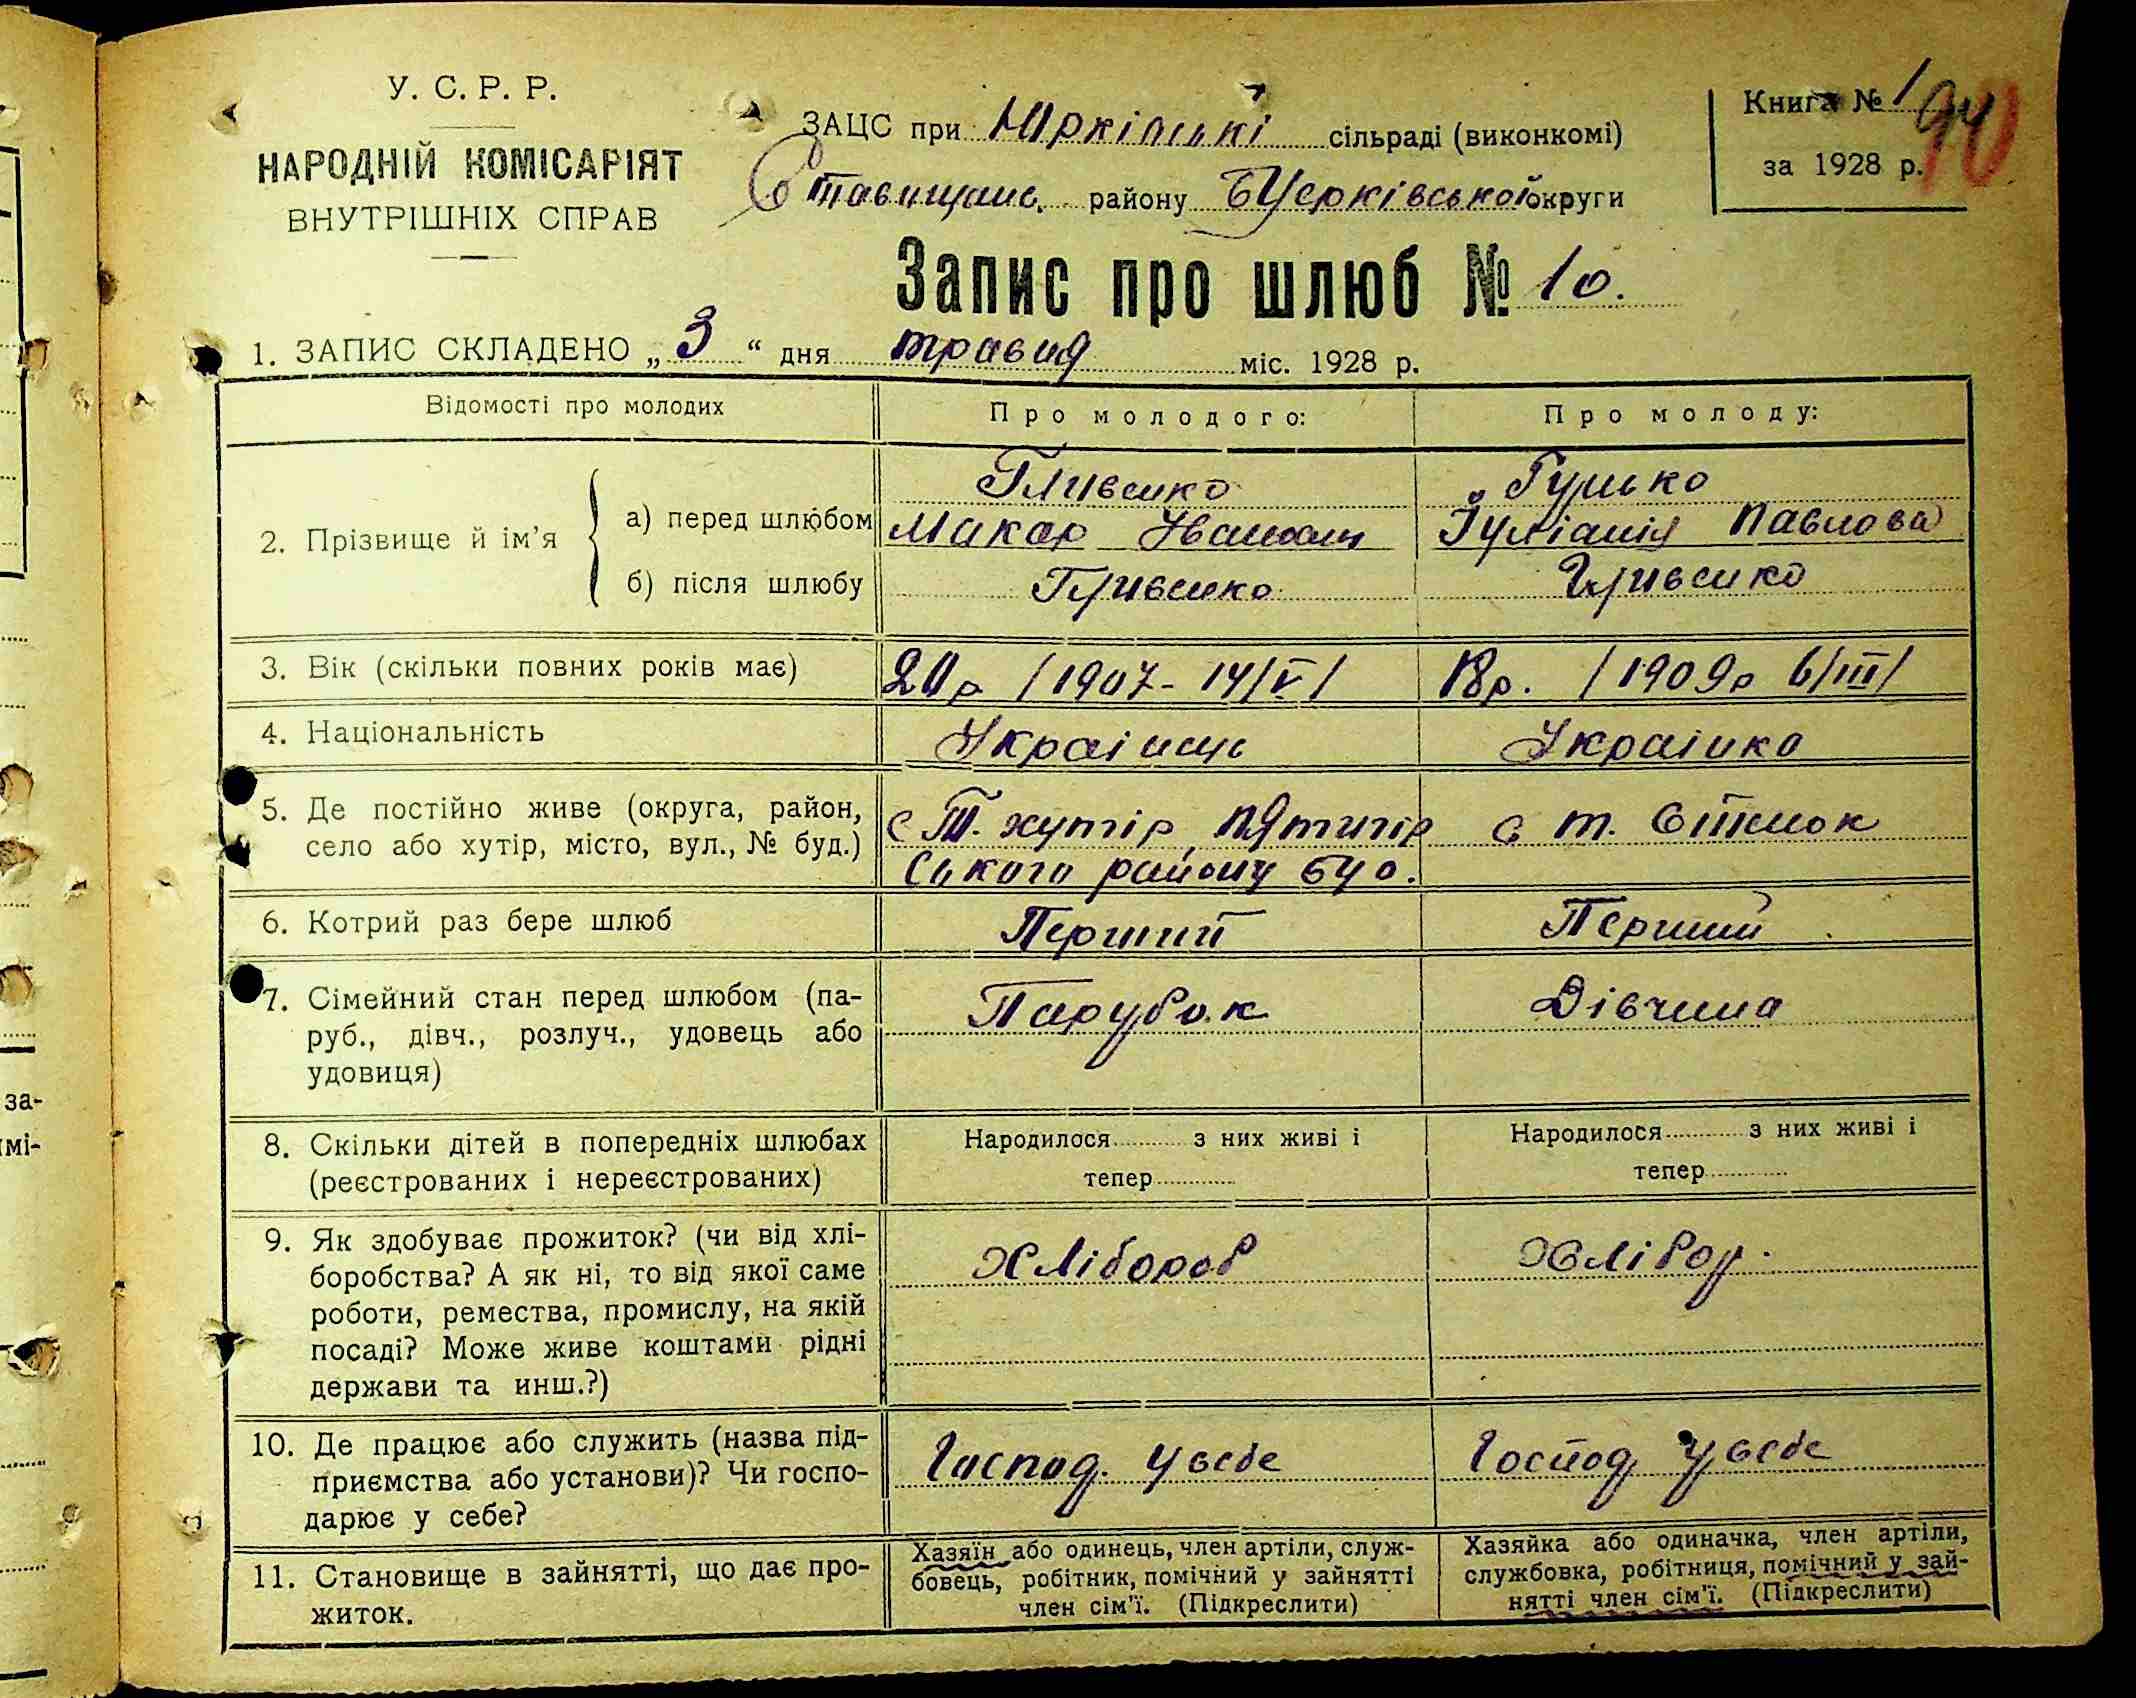 У. С. Р. Р.
НАРОДНІЙ КОМІСАРІЯТ
ВНУТРІШНІХ СПРАВ
ЗАЦС при Юрківській сільраді (виконкомі)
Ставищанс. району БЦерківської округи
Книга № 1
за 1928 р.
Запис про шлюб № 10.
1. ЗАПИС СКЛАДЕНО „ 3 “ дня травня міс. 1928 р.
Відомості про молодих
Про молодого:
Про молоду:
2. Прізвище й ім’я
а) перед шлюбом
Макар Іванович
Гулько
Іуліанія Павлова
б) після шлюбу
3. Вік (скільки повних років має)
20 р /1907- 14/V/
18 р. /1909 р 6/III/
4. Національність
Українець
Українка
5. Де постійно живе (округа, район,
село або хутір, місто, вул., № буд.)
хутір Пятигір
ського району БЦо.
6. Котрий раз бере шлюб
Перший
Перший
7. Сімейний стан перед шлюбом (па-
руб., дівч., розлуч., удовець або
удовиця)
Парубок
Дівчина
8. Скільки дітей в попередніх шлюбах
(реєстрованих і нереєстрованих)
Народилося з них живі і
тепер
Народилося з них живі і
тепер
9. Як здобуває прожиток? (чи від хлі-
боробства? А як ні, то від якої саме
роботи, ремества, промислу, на якій
посаді? Може живе коштами рідні
держави та инш.?)
Хлібороб
Хлібор.
10. Де працює або служить (назва під-
приємства або установи)? Чи госпо-
дарює у себе?
Господ. у себе
Господ у себе
11. Становище в зайнятті, що дає про-
житок.
Хазяїн або одинець, член артіли, служ-
бовець, робітник, помічний у зайнятті
член сім’ї. (Підкреслити)
Хазяйка або одиначка, член артіли,
службовка, робітниця, помічний у зай-
нятті член сім’ї. (Підкреслити)
за-
імі-